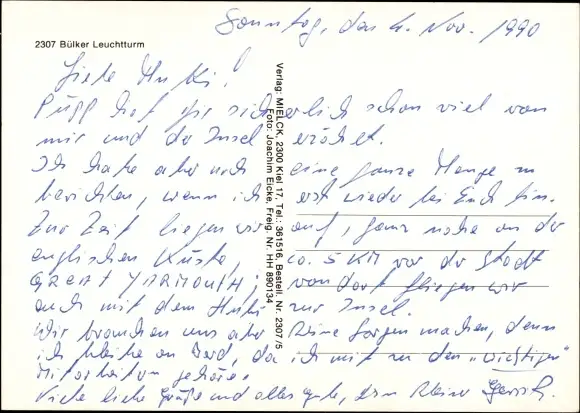 Sonntag, den 4. Nov. 1990
2307 Bülker Leuchtturm
Liebe Muki!
Pupp hat ja sicherlich schon viel von
mir und der Insel erzählt.
Ich habe aber noch eine ganze Menge zu
berichten, wenn ich erst wieder bei Euch bin.
Zur Zeit liegen wir auf, ganz nahe an der
englischen Küste, ca. 5 KM vor der Stadt
GREAT YARMOUTH; von dort fliegen wir
auch mit dem Hubi zur Insel.
Wir brauchen uns aber keine Sorgen machen, denn
ich bleibe an Bord, da ich mit zu den „wichtigen"
Mitarbeitern gehöre.
Viele liebe Grüße und alles gute, Dein kleiner
Verlag: MIELCK, 2300 Kiel 17, Tel.: 361516, Bestell. Nr. 2307/5
Foto: Joachim Eicke, Freig. Nr. HH 890134